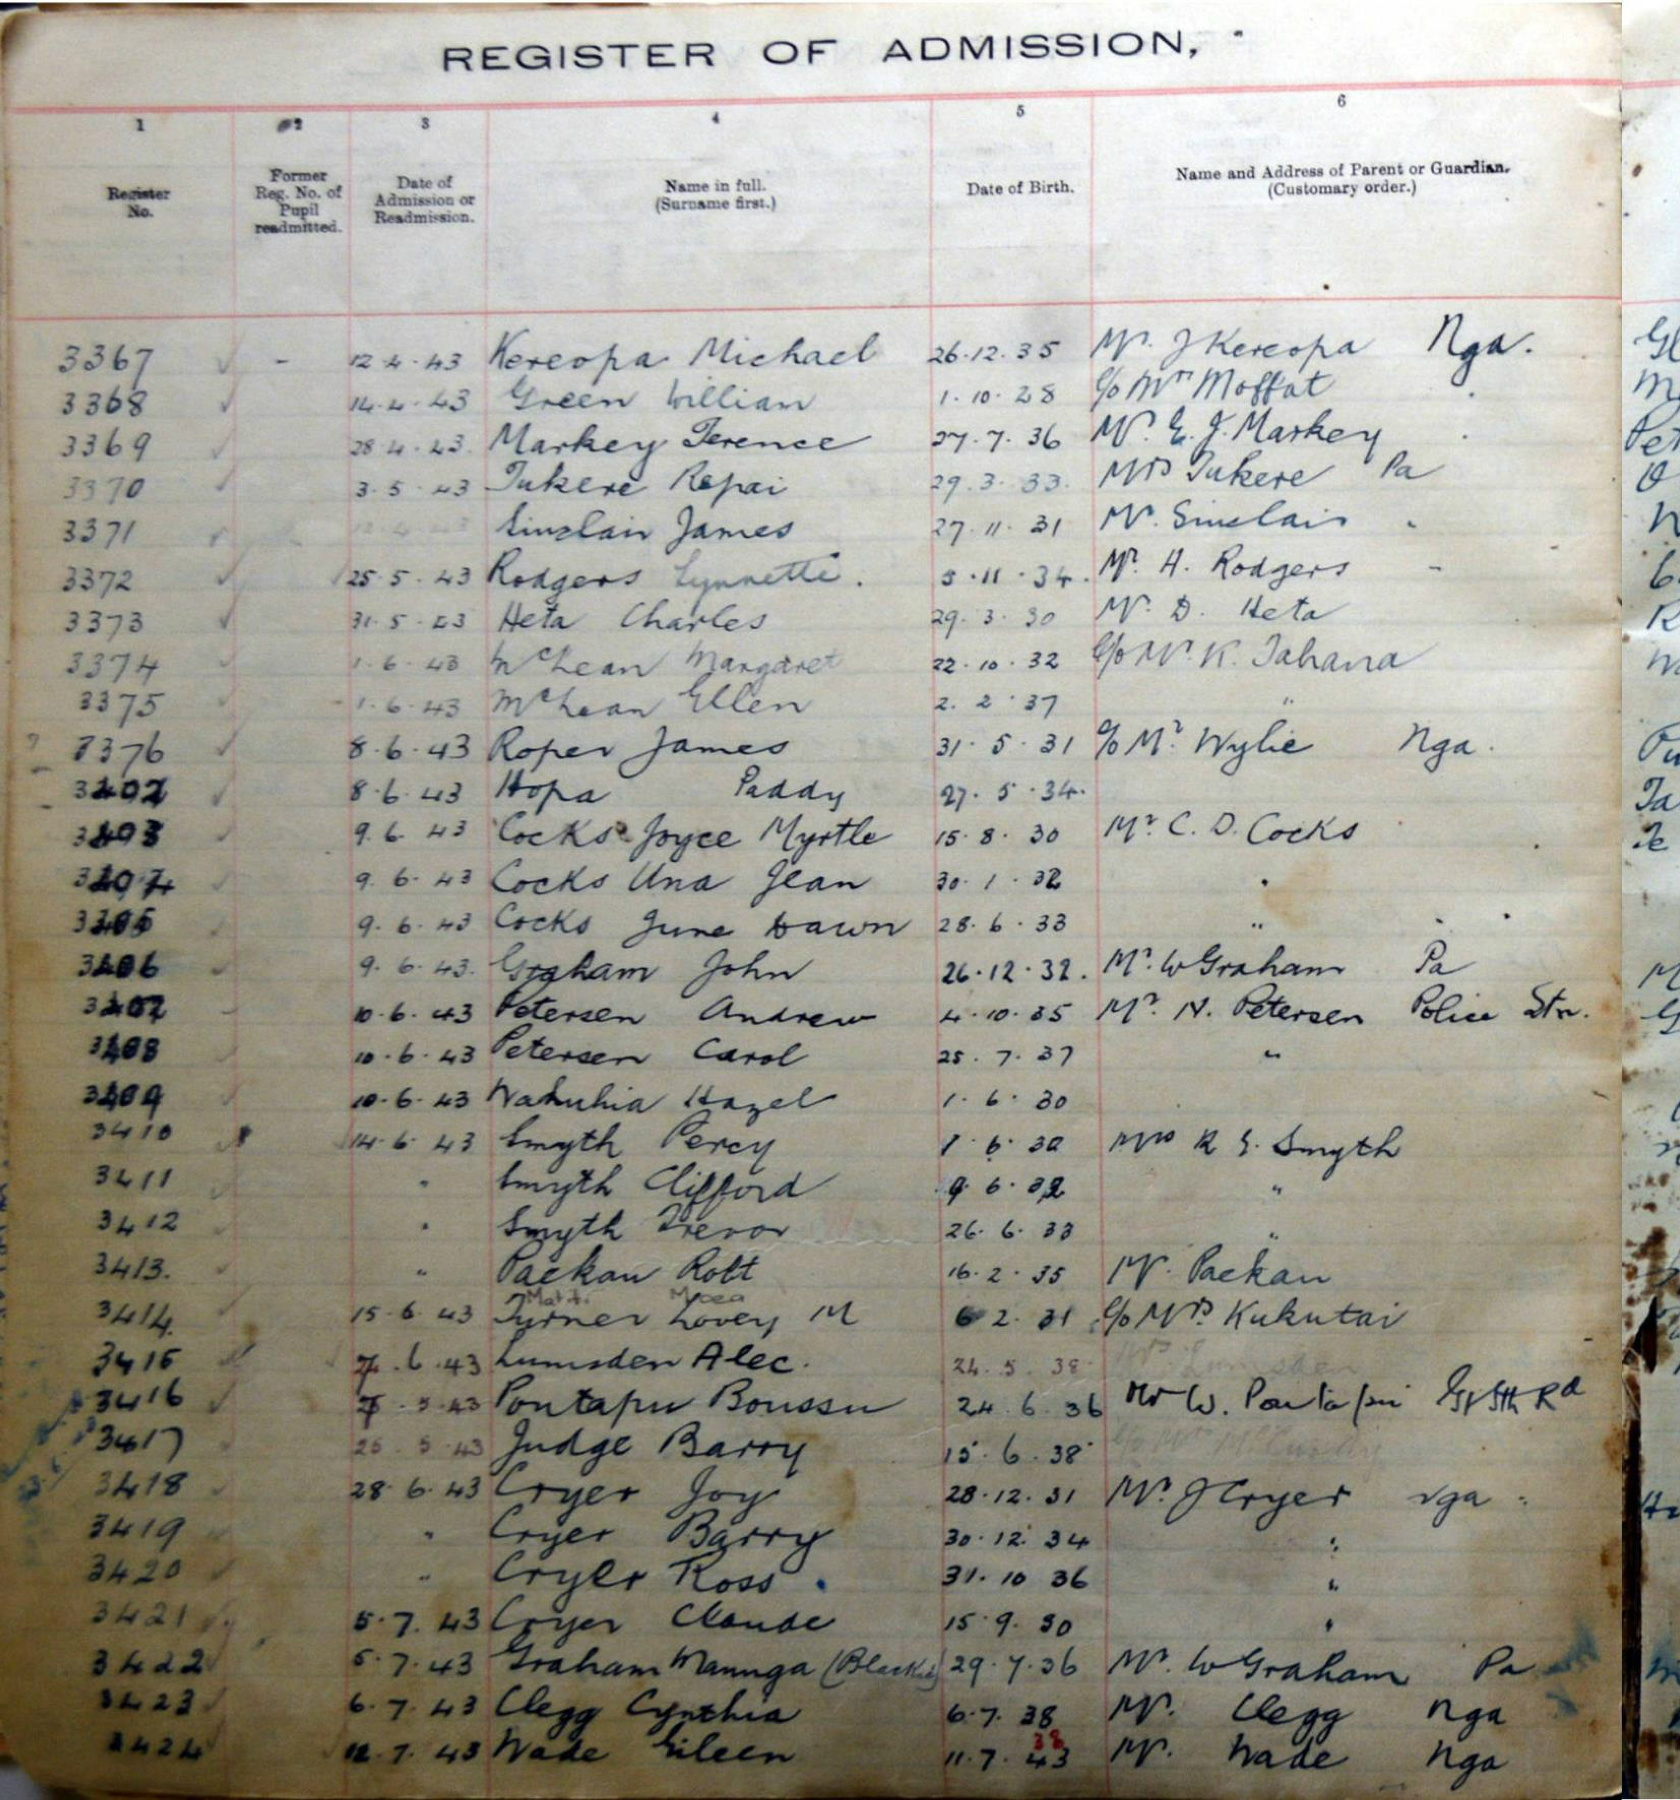 REGISTER OF ADMISSION,
1 2 3 4 5 6
Register No. Former Reg. No. of Pupil readmitted. Date of Admission or Readmission. Name in full. (Surname first.) Date of Birth. Name and Address of Parent or Guardian. (Customary order.)
3367 - 12.4.43 Kereopa Michael 26.12.35 Mr. J Kereopa Nga.
3368 14.4.43 Green William 1.10.28 c/o Mrs Moffat
3369 28.4.43 Markey Terence 27.7.36 Mr. E. J. Markey
3370 3.5.43 Tukere Repai 29.3.33. Mrs Tukere Pa
3371 Sinclair James 27.11.31 Mr. Sinclair "
3372 25.5.43 Rodgers Lynnette. 5.11.34. Mr. H. Rodgers -
3373 31.5.43 Heta Charles 29.3.30 Mr. D. Heta
3374 1.6.43 McLean Margaret 22.10.32 c/o Mr. K. Tahana
3375 1.6.43 McLean Ellen 2.2.37 "
? 3376 8.6.43 Roper James 31.5.31 c/o Mr. Wylie Nga.
3402 8.6.43 Hopa Paddy 27.5.34.
3403 9.6.43 Cocks Joyce Myrtle 15.8.30 Mr. C. D. Cocks
3404 9.6.43 Cocks Una Jean 30.1.32 "
3405 9.6.43 Cocks June Dawn 28.6.33 " "
3406 9.6.43. Graham John 26.12.32. Mr. W Graham Pa
3407 10.6.43 Petersen Andrew 4.10.35 Mr. N. Petersen Police Stn.
3408 10.6.43 Petersen Carol 25.7.37 "
3409 10.6.43 Wahuhia Hazel 1.6.30
3410 14.6.43 Smyth Percy 6.30 Mrs R E. Smyth
3411 " Smyth Clifford 9.6.32 "
3412 " Smyth Trevor 26.6.33 "
3413. " Packan Robt 16.2.35 Mr. Packan
3414. 15.6.43 Turner Lovey M 6 2.31 c/o Mrs. Kukutai
3415 .6.43 Lumsden Alec. 24.5.38 Mr. Lumsden
3416 .43 Poutapu Boussu 24.6.36 Mr W. Poutapu Gt Sth Rd
3417 25.5.43 Judge Barry 15.6.38
3418 28.6.43 Cryer Joy 28.12.31 Mr. J Cryer Nga "
3419 " Cryer Barry 30.12.34 "
3420 " Cryer Ross. 31.10 36 "
3421 5.7.43 Cryer Claude 15.9.30 "
3422 5.7.43 Graham Maunga (Blackie) 29.7.36 Mr. W Graham Pa
3423 6.7.43 Clegg Cynthia 6.7.38 Mr. Clegg Nga
3424 12.7.43 Wade Eileen 11.7.43 38 Mr. Wade Nga